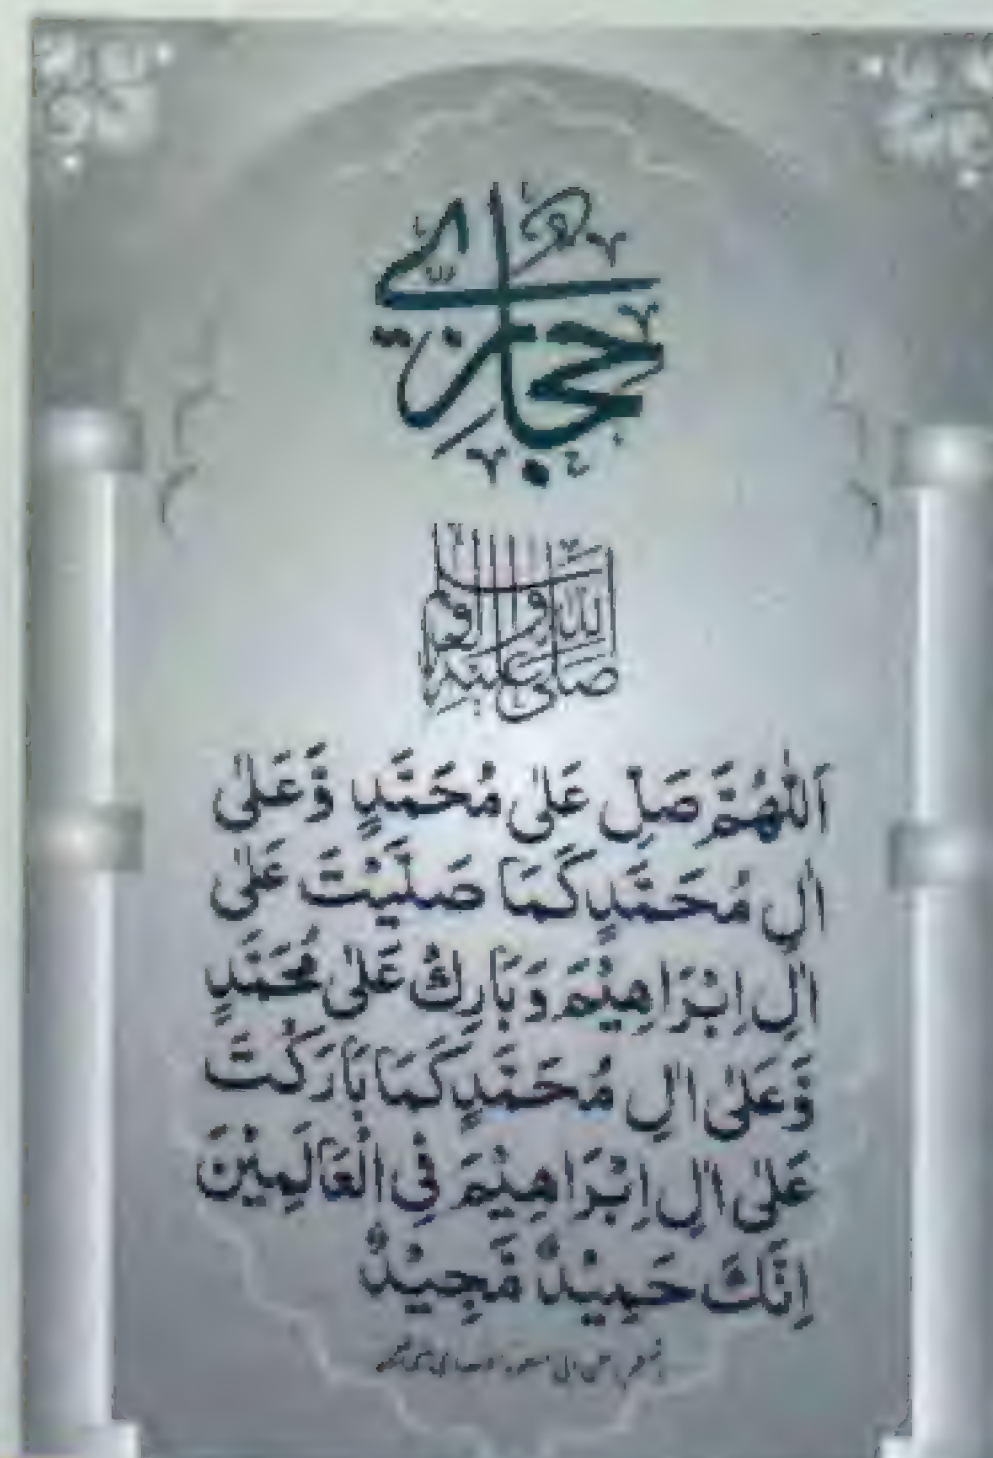 حجازي
صلى الله عليه وآله وسلم
اَللّٰهُمَّ صَلِّ عَلٰى مُحَمَّدٍ وَّعَلٰى
اٰلِ مُحَمَّدٍ كَمَا صَلَّيْتَ عَلٰى
اٰلِ اِبْرَاهِيْمَ وَبَارِكْ عَلٰى مُحَمَّدٍ
وَّعَلٰى اٰلِ مُحَمَّدٍ كَمَا بَارَكْتَ
عَلٰى اٰلِ اِبْرَاهِيْمَ فِى الْعَالَمِيْنَ
اِنَّكَ حَمِيْدٌ مَّجِيْدٌ